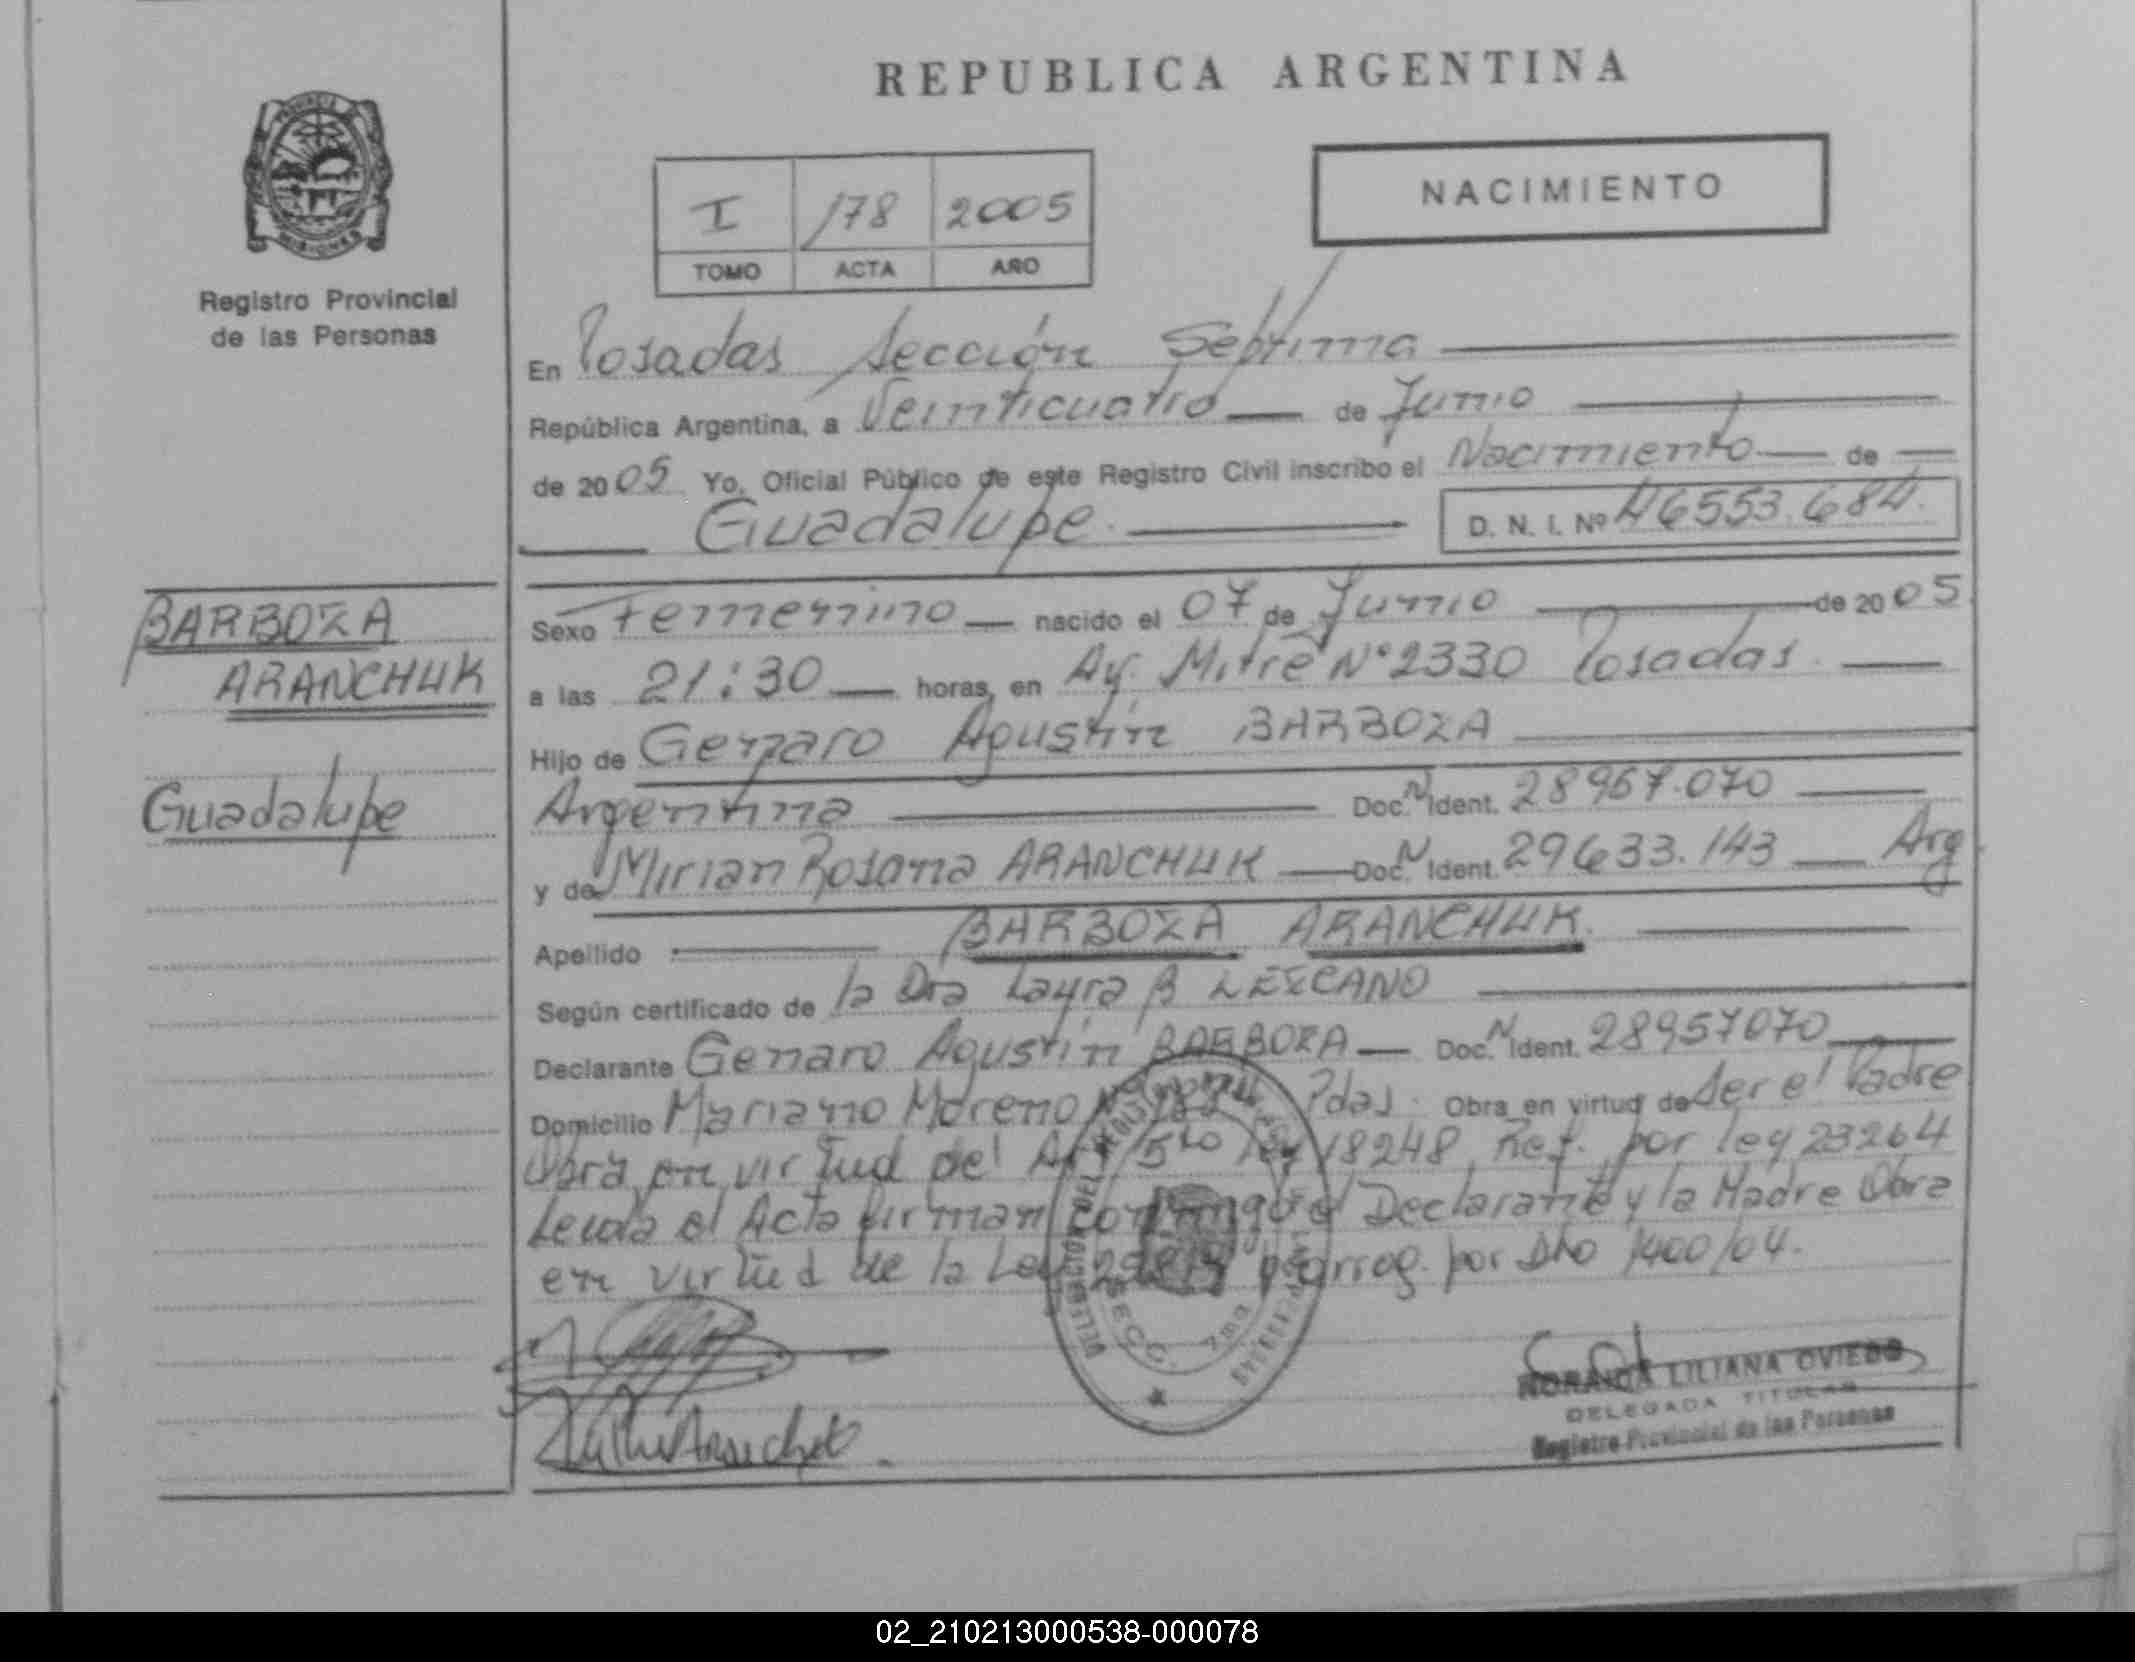 REPUBLICA ARGENTINA
PROVINCIA DE MISIONES
Registro Provincial
de las Personas
I /78 2005
TOMO ACTA AÑO
NACIMIENTO
En Posadas Sección Séptima
República Argentina, a Veinticuatro de Junio
de 2005 Yo, Oficial Público de este Registro Civil inscribo el Nacimiento de
Guadalupe. D. N. I. Nº 46553.684.
BARBOZA
ARANCHUK
Guadalupe
Sexo Femenino nacido el 07 de Junio de 2005
a las 21:30 horas, en Av. Mitre N° 2330 Posadas.
Hijo de Genaro Agustín BARBOZA
Argentina Doc. N Ident. 28957.070
y de Mirian Rosana ARANCHUK Doc. N Ident. 29633.143 Arg
Apellido BARBOZA ARANCHUK.
Según certificado de la Dra Laura B LEZCANO
Declarante Genaro Agustín BARBOZA Doc. N Ident. 28957070
Domicilio Mariano Moreno Pdas. Obra en virtud de ser el Padre
Obra en virtud del Art 5to ley 18248 Ref. por ley 23264
Leida el Acta firman conmigo el Declarante y la Madre Obra
en virtud de la Ley prorrog. por Dto 1400/04.
SECC. 7ma
NORAIDA LILIANA OVIEDO
DELEGADA TITULAR
Registro Provincial de las Personas
02_210213000538-000078